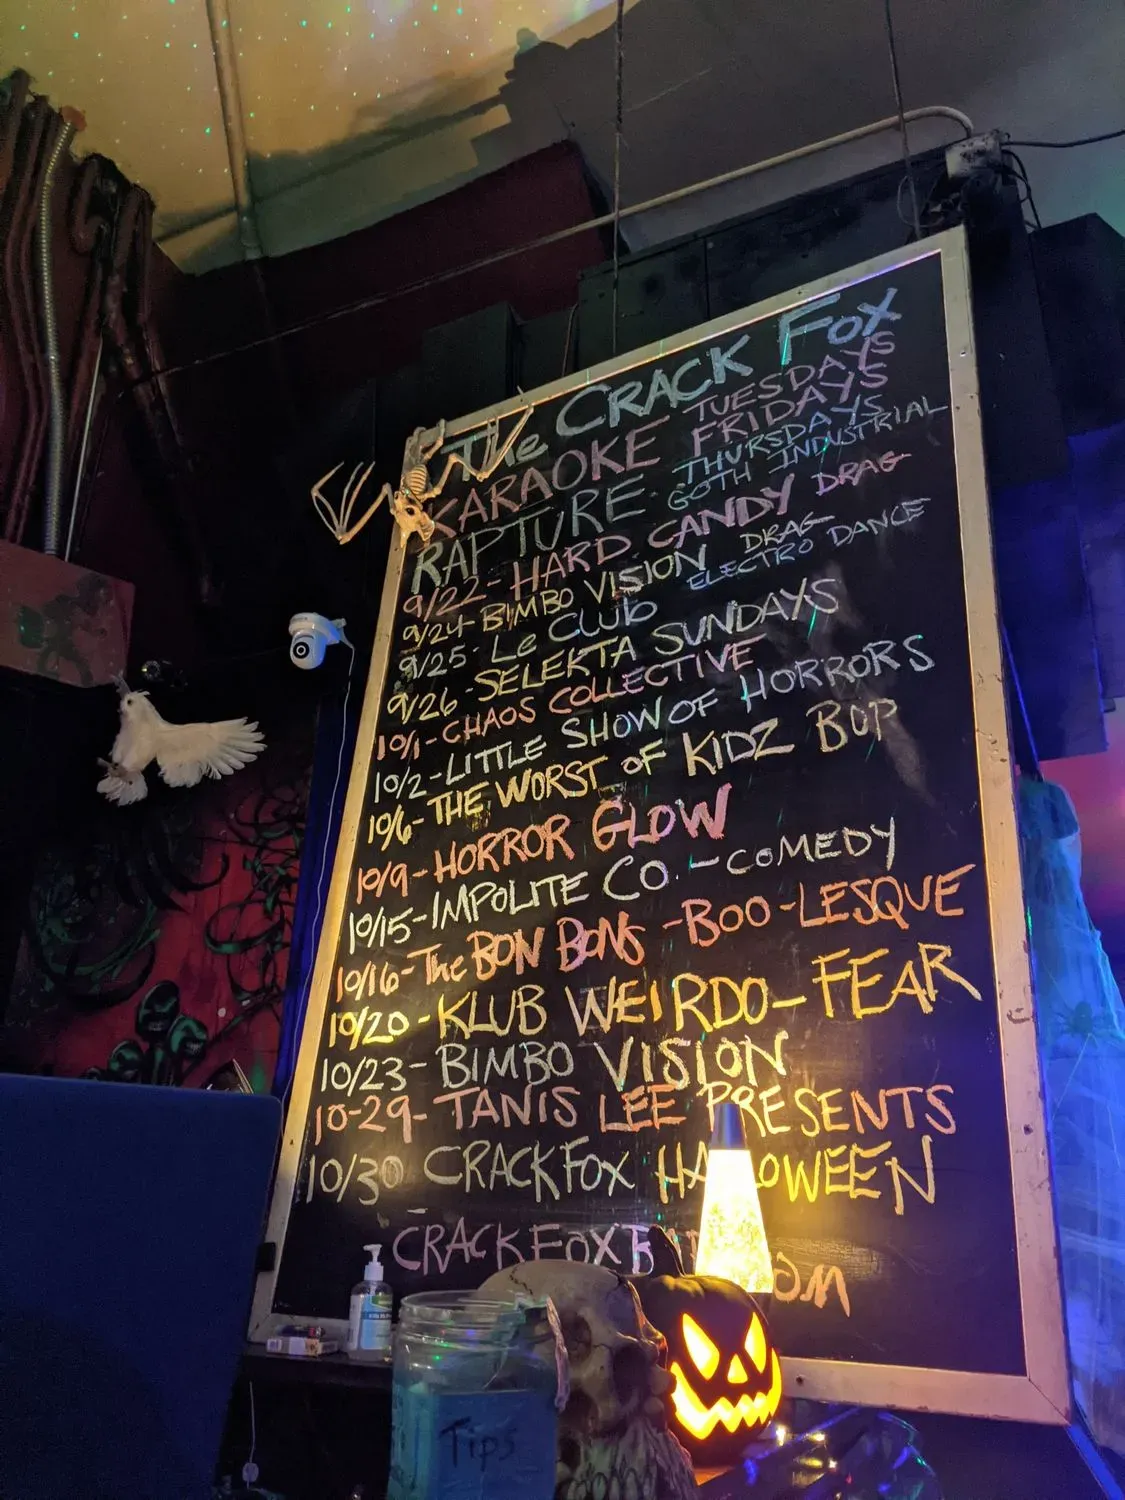 The CRACK FOX
KARAOKE TUESDAYS
FRIDAYS
RAPTURE - THURSDAYS
GOTH INDUSTRIAL
9/22 - HARD CANDY DRAG
9/24 - BIMBO VISION DRAG
9/25 - Le CLUB ELECTRO DANCE
9/26 - SELEKTA SUNDAYS
10/1 - CHAOS COLLECTIVE
10/2 - LITTLE SHOW OF HORRORS
10/6 - THE WORST OF KIDZ BOP
10/9 - HORROR GLOW
10/15 - IMPOLITE CO. - COMEDY
10/16 - The BON BONS - BOO-LESQUE
10/20 - KLUB WEIRDO - FEAR
10/23 - BIMBO VISION
10-29 - TANIS LEE PRESENTS
10/30 - CRACKFOX HALLOWEEN
CRACKFOXB
Tips